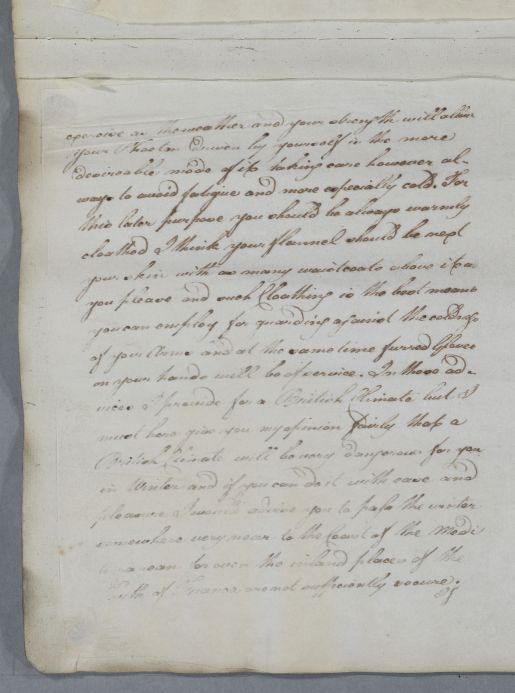 exercise as the weather and your strength will allow
your Phaeton driven by yourself is the more
desireable mode of it taking care however al-
ways to avoid fatigue and more especially cold. For
this later purpose you should be always warmly
cloathed I think your flannel should be next
your skin with as many waistcoats above it as
you please and such Cloathing is the best means
you can employ for guarding against the coldness
of your Arms and at the same time furred Gloves
on your hands will be of service. In these ad-
vices I provide for a British Climate but I
must here give you my opinion fairly that a
British Climate will be very dangerous for you
in Winter and if you can do it with ease and
pleasure I would advise you to pass the winter
somewhere very near to the Coast of the Medi
terranean for even the inland places of the
South of France are not sufficiently secure.